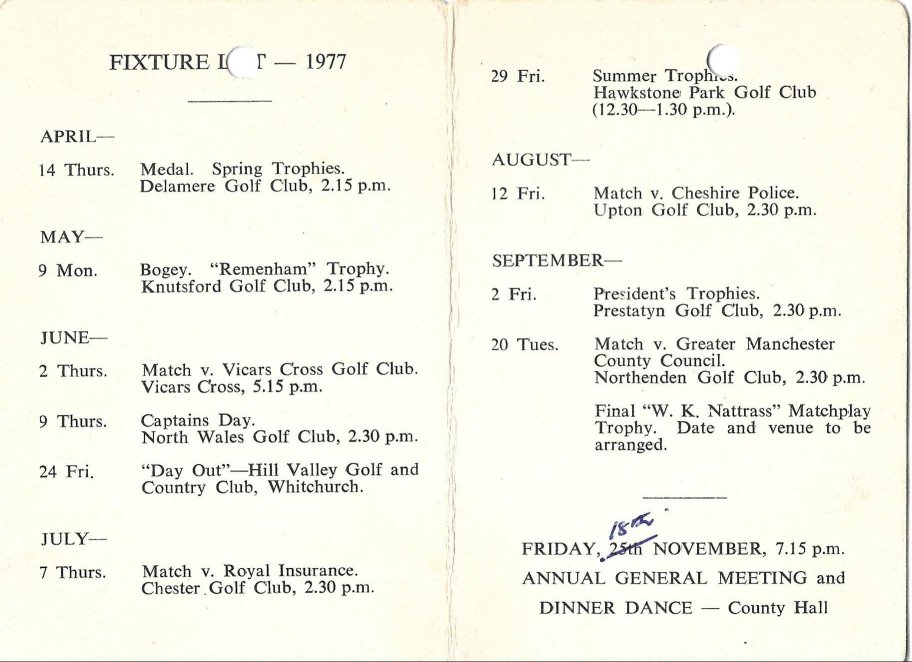 FIXTURE L T — 1977
APRIL—
14 Thurs. Medal. Spring Trophies.
Delamere Golf Club, 2.15 p.m.
MAY—
9 Mon. Bogey. “Remenham” Trophy.
Knutsford Golf Club, 2.15 p.m.
JUNE—
2 Thurs. Match v. Vicars Cross Golf Club.
Vicars Cross, 5.15 p.m.
9 Thurs. Captains Day.
North Wales Golf Club, 2.30 p.m.
24 Fri. “Day Out”—Hill Valley Golf and
Country Club, Whitchurch.
JULY—
7 Thurs. Match v. Royal Insurance.
Chester Golf Club, 2.30 p.m.
29 Fri. Summer Trophies.
Hawkstone Park Golf Club
(12.30—1.30 p.m.).
AUGUST—
12 Fri. Match v. Cheshire Police.
Upton Golf Club, 2.30 p.m.
SEPTEMBER—
2 Fri. President’s Trophies.
Prestatyn Golf Club, 2.30 p.m.
20 Tues. Match v. Greater Manchester
County Council.
Northenden Golf Club, 2.30 p.m.
Final “W. K. Nattrass” Matchplay
Trophy. Date and venue to be
arranged.
18th
FRIDAY, 25th NOVEMBER, 7.15 p.m.
ANNUAL GENERAL MEETING and
DINNER DANCE — County Hall